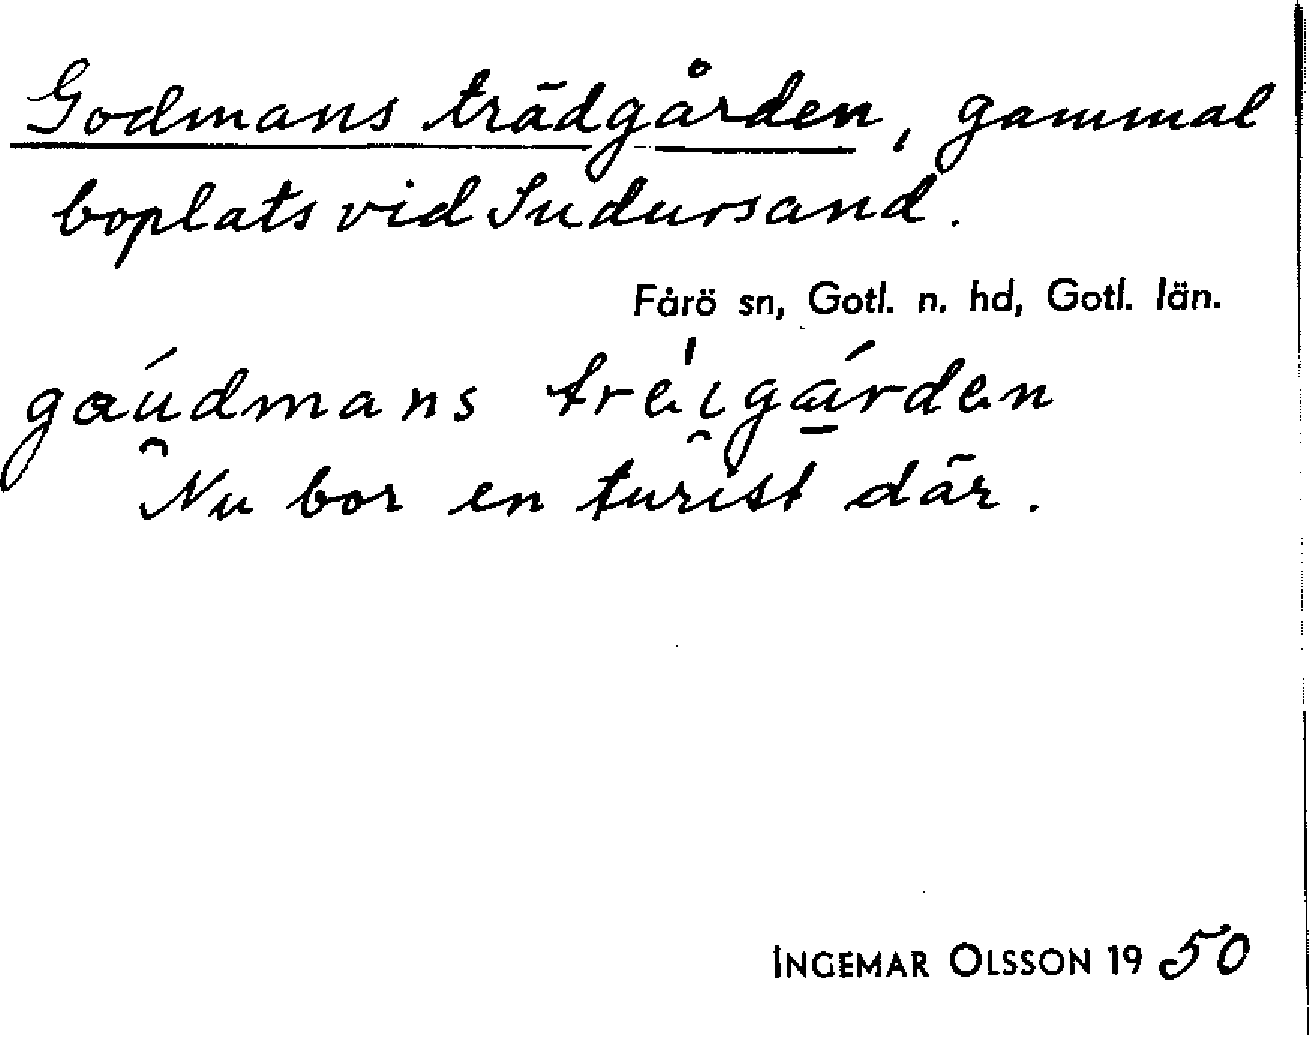 Godmans trädgården, gammal
boplats vid Sudursand.
Fårö sn, Gotl. n. hd, Gotl. län.
gaúdmans tre̍i̯gá̱rden
Nu bor en turist där.
INGEMAR OLSSON 1950